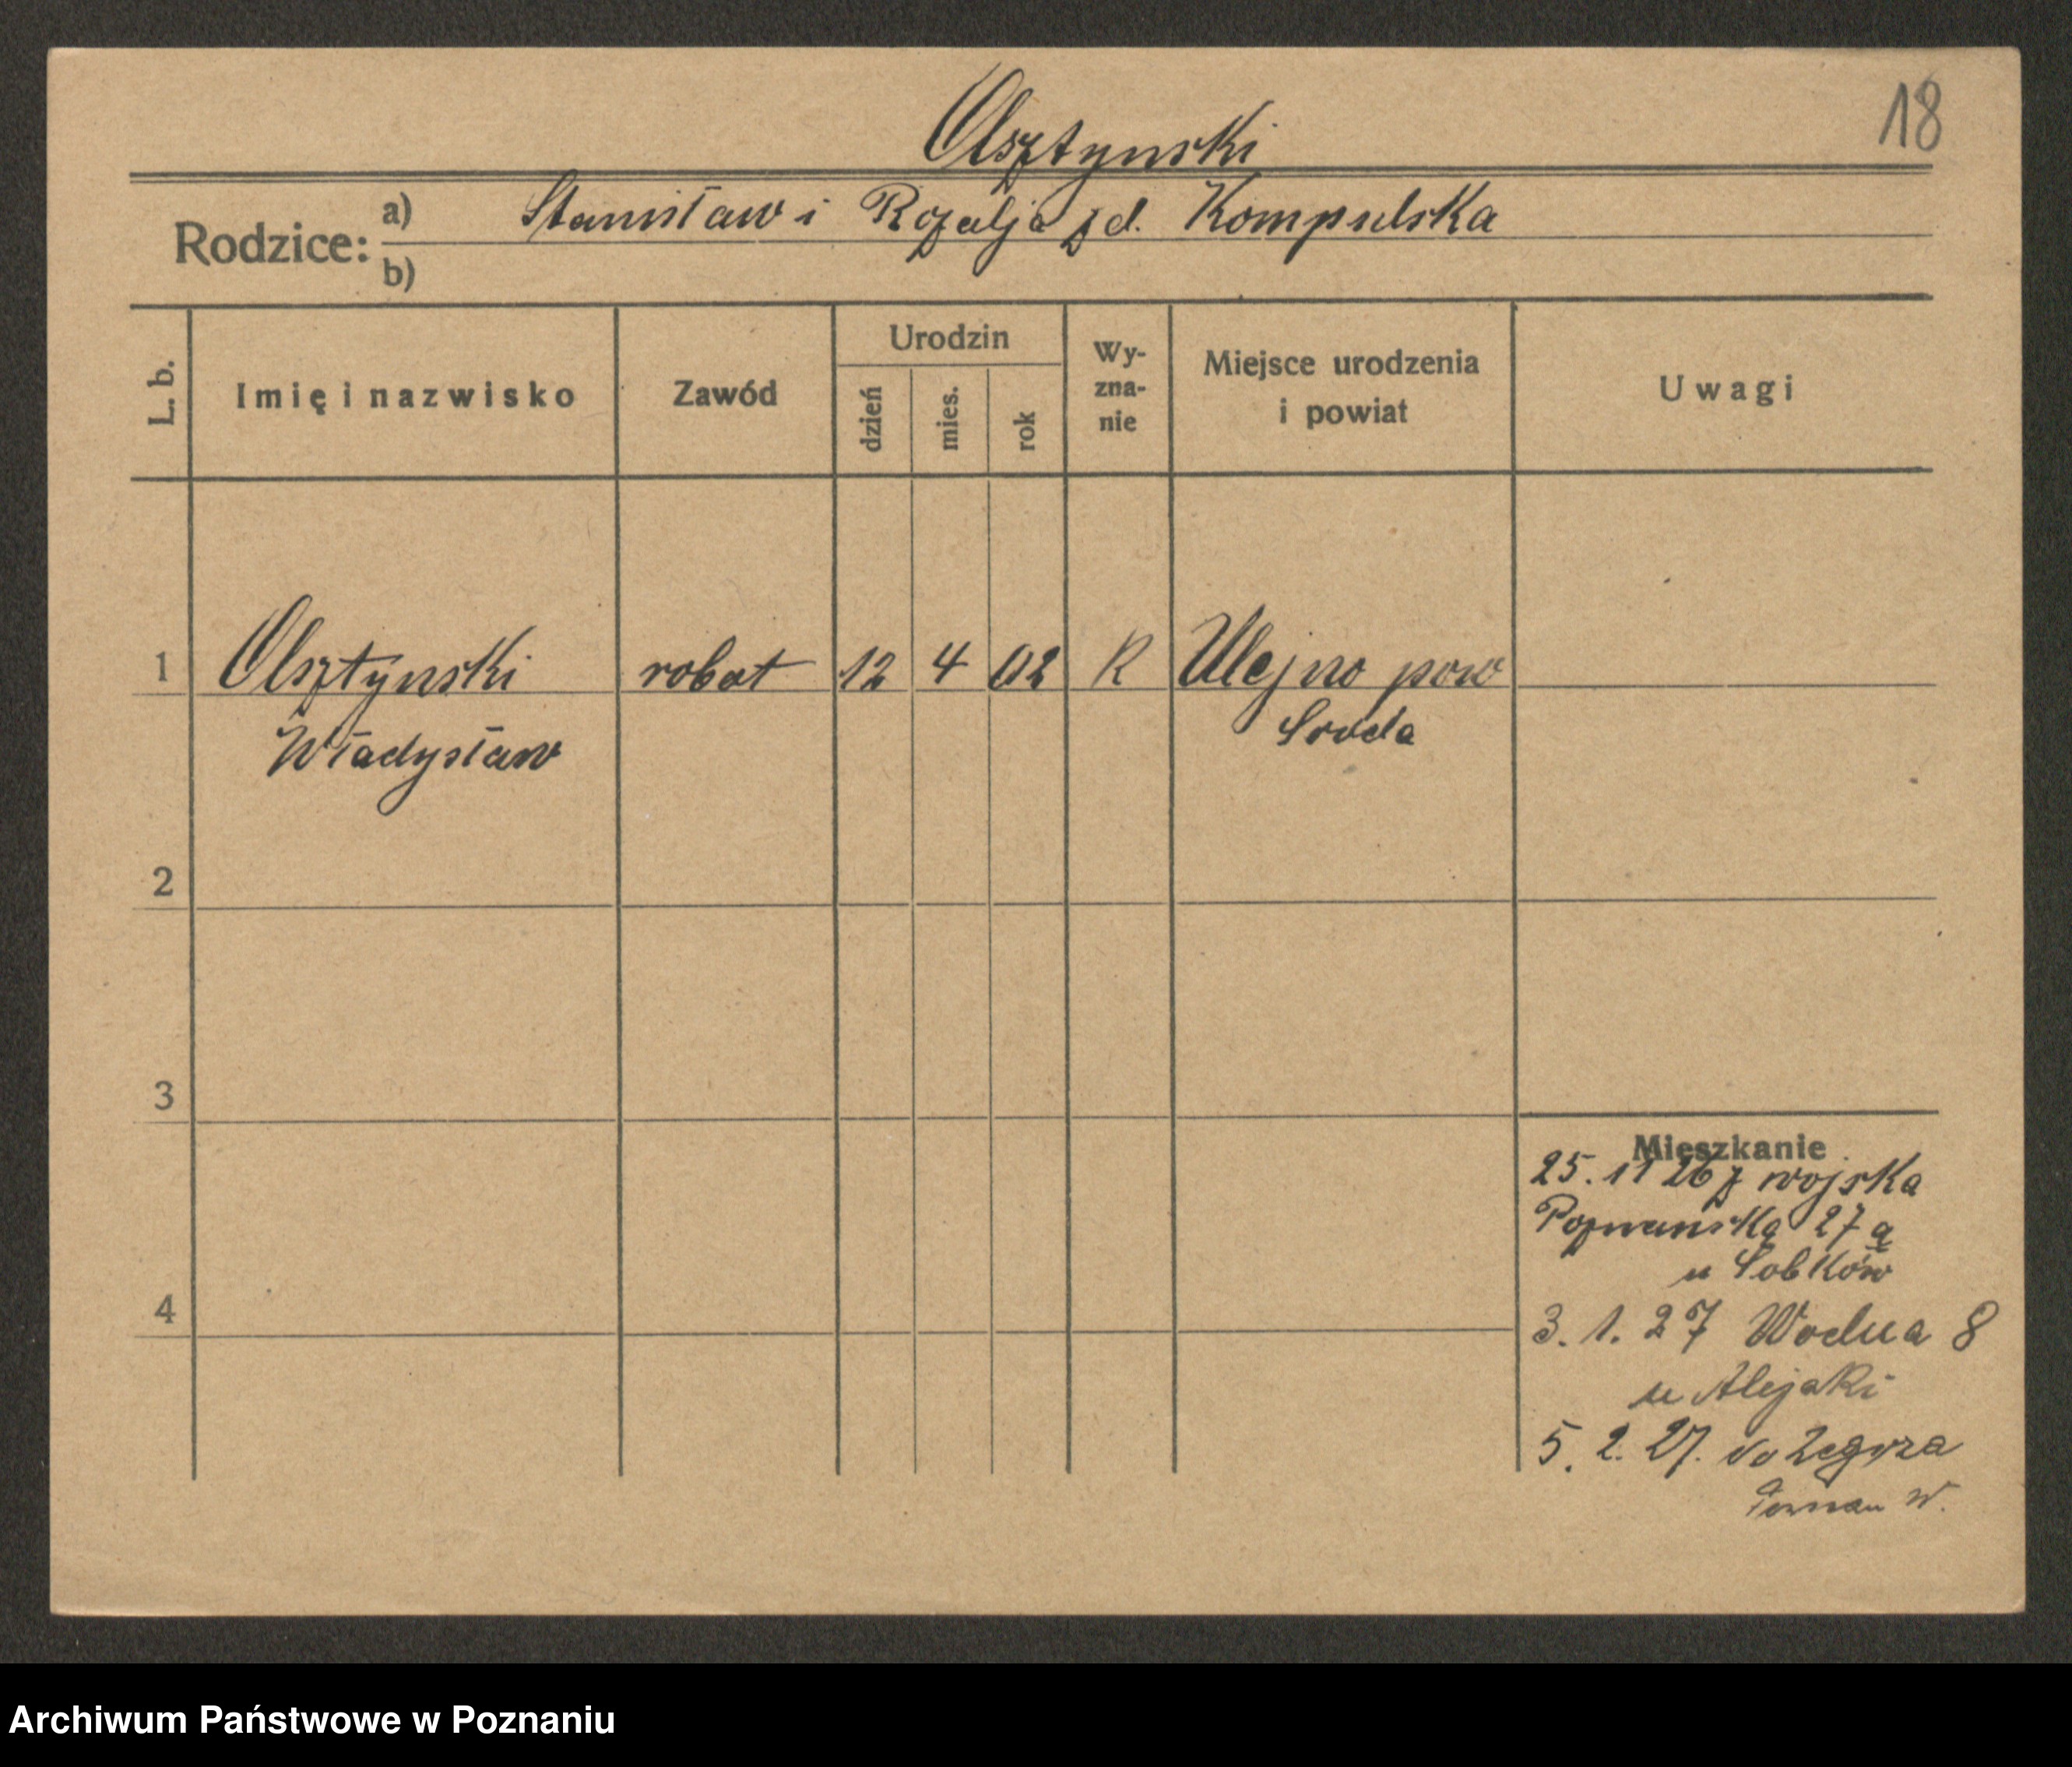 18
Olsztynski
Rodzice:
a) Stanisław i Rozalja z d. Kompulska
b)
L. b.
Imię i nazwisko
Zawód
Urodzin
dzień
mies.
rok
Wy-
zna-
nie
Miejsce urodzenia
i powiat
Uwagi
1 Olsztynski robot 12 4 02 R Ulejno pow
Władysław Sroda
2
3
4
Mieszkanie
25. 11 26 z wojska
Poznanska 27 a
u Sobków
3. 1. 27 Wodna 8
u
5. 2. 27. do Zegrza
Poznan W.
Archiwum Państwowe w Poznaniu